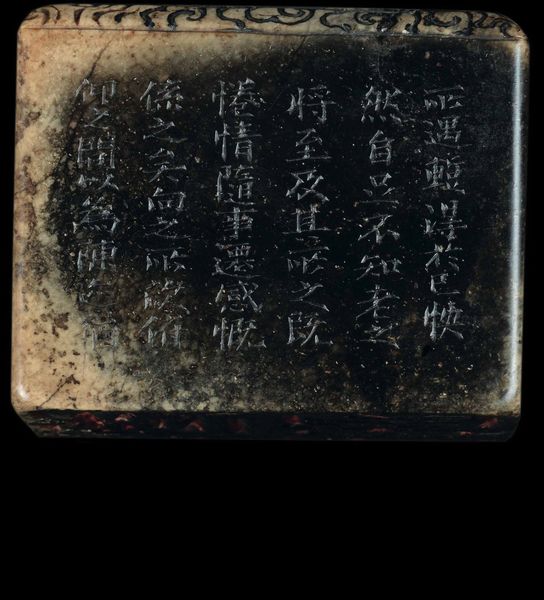 所遇暫得於己快
然自足不知老之
將至及其所之既
惓情隨事遷感慨
係之矣向之所欣俯
仰之間以為陳迹猶